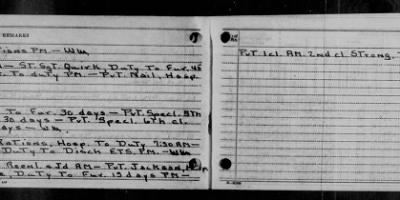 REMARKS
tions PM. — Wm
— ST. Sgt. Quirk Duty To Fur. 45
To duty PM. — Pvt. Nail, Hosp.
To Fur. 30 days — Pvt. Specl. 5th
30 days — Pvt. Specl. 6th cl.
days — Wm.
Rations, Hosp. To Duty 7:30 AM —
Duty To Disch ETS. PM. — Wm
Reenl. & Jd AM — Pvt. Jackson,
Duty To Fur. 15 days PM —
Pvt 1cl. AM. 2nd cl Strong.